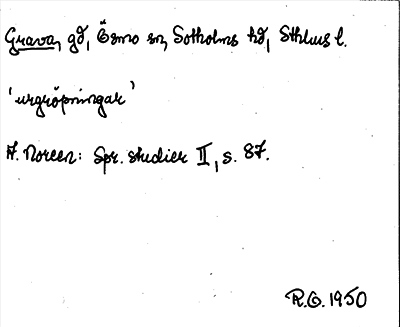 Grava, gd, Ösmo sn, Sotholms hd, Sthlms l.
'urgröpningar'
A. Noreen: Spr. studier II, s. 87.
R.G. 1950